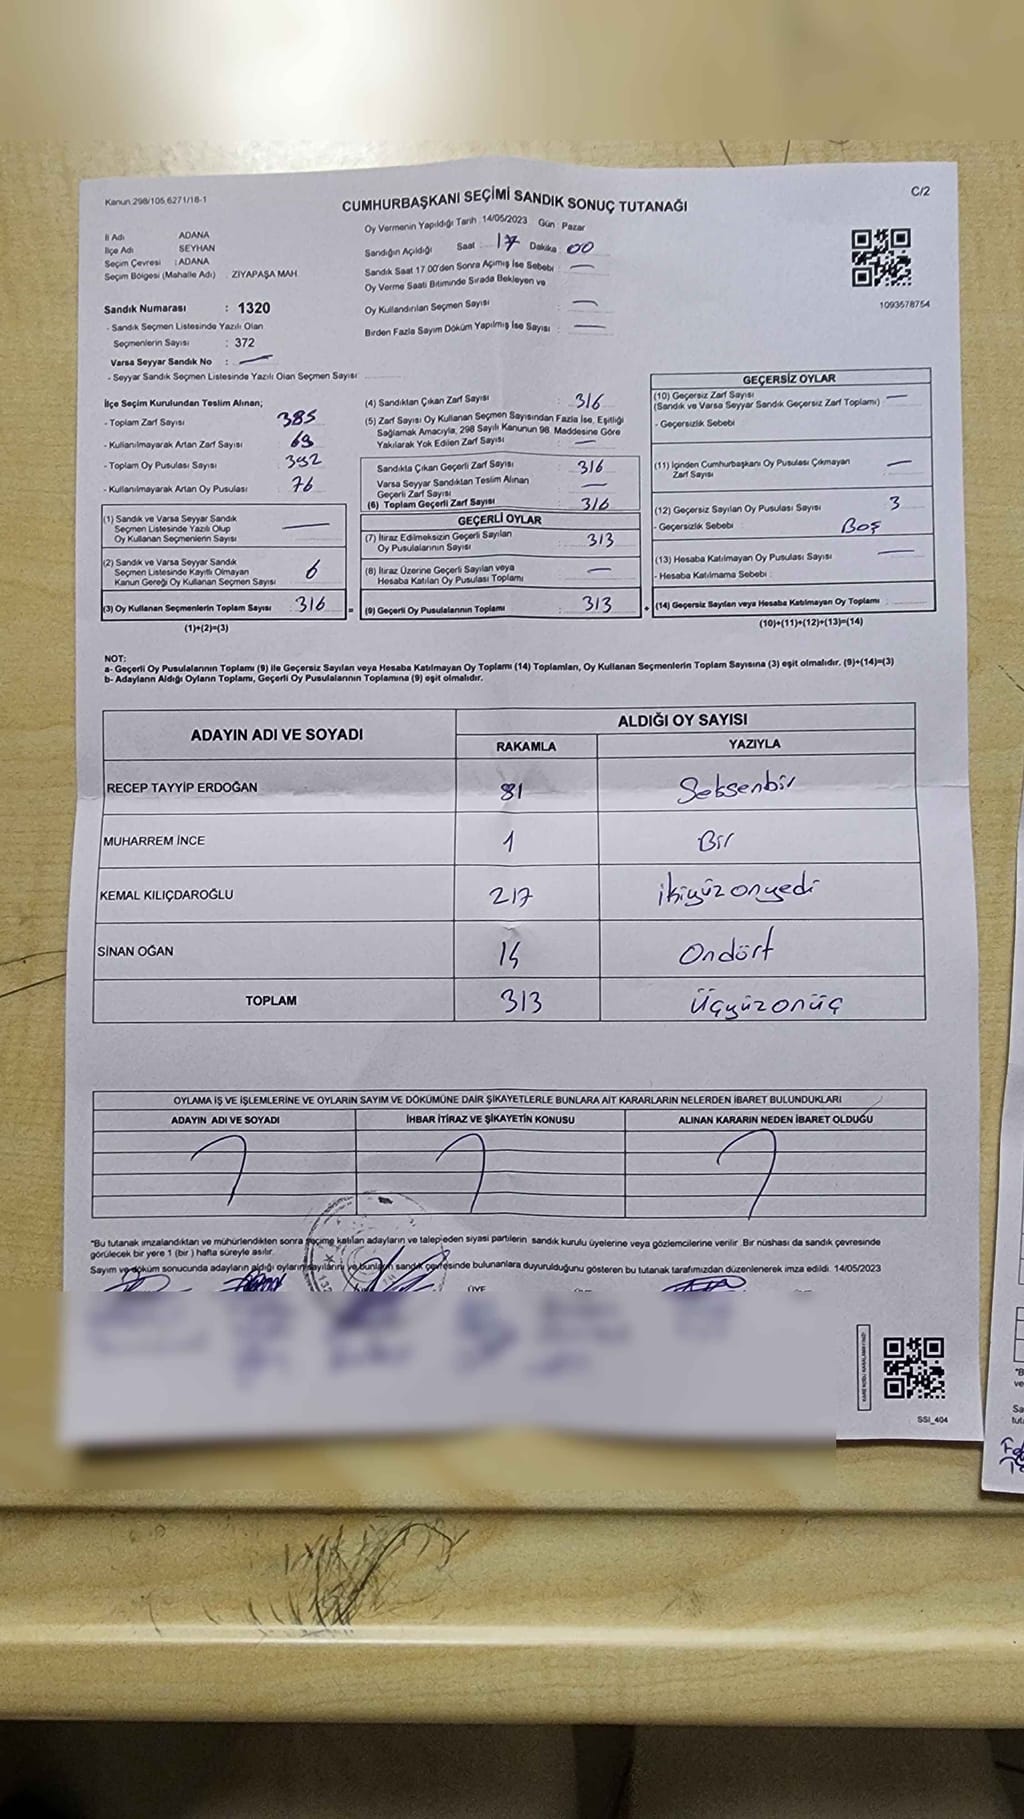 Kanun.298/105,6271/18-1
C/2
CUMHURBAŞKANI SEÇİMİ SANDIK SONUÇ TUTANAĞI
İl Adı ADANA
İlçe Adı SEYHAN
Seçim Çevresi : ADANA
Seçim Bölgesi (Mahalle Adı) : ZİYAPAŞA MAH.
Oy Vermenin Yapıldığı Tarih : 14/05/2023 Gün : Pazar
Sandığın Açıldığı Saat : 17 Dakika : 00
Sandık Saat 17.00'den Sonra Açımış İse Sebebi : —
Oy Verme Saati Bitiminde Sırada Bekleyen ve
Oy Kullandırılan Seçmen Sayısı : —
Birden Fazla Sayım Döküm Yapılmış İse Sayısı : —
1093578754
Sandık Numarası : 1320
- Sandık Seçmen Listesinde Yazılı Olan
Seçmenlerin Sayısı : 372
Varsa Seyyar Sandık No : —
- Seyyar Sandık Seçmen Listesinde Yazılı Olan Seçmen Sayısı
İlçe Seçim Kurulundan Teslim Alınan;
- Toplam Zarf Sayısı : 385
- Kullanılmayarak Artan Zarf Sayısı : 69
- Toplam Oy Pusulası Sayısı : 392
- Kullanılmayarak Artan Oy Pusulası : 76
(1) Sandık ve Varsa Seyyar Sandık
Seçmen Listesinde Yazılı Olup
Oy Kullanan Seçmenlerin Sayısı : —
(2) Sandık ve Varsa Seyyar Sandık
Seçmen Listesinde Kayıtlı Olmayan
Kanun Gereği Oy Kullanan Seçmen Sayısı : 6
(3) Oy Kullanan Seçmenlerin Toplam Sayısı : 316
(1)+(2)=(3)
(4) Sandıktan Çıkan Zarf Sayısı : 316
(5) Zarf Sayısı Oy Kullanan Seçmen Sayısından Fazla İse, Eşitliği
Sağlamak Amacıyla, 298 Sayılı Kanunun 98. Maddesine Göre
Yakılarak Yok Edilen Zarf Sayısı : —
Sandıkta Çıkan Geçerli Zarf Sayısı : 316
Varsa Seyyar Sandıktan Teslim Alınan
Geçerli Zarf Sayısı : —
(6) Toplam Geçerli Zarf Sayısı : 316
GEÇERLİ OYLAR
(7) İtiraz Edilmeksizin Geçerli Sayılan
Oy Pusulalarının Sayısı : 313
(8) İtiraz Üzerine Geçerli Sayılan veya
Hesaba Katılan Oy Pusulası Toplamı : —
= (9) Geçerli Oy Pusulalarının Toplamı : 313
GEÇERSİZ OYLAR
(10) Geçersiz Zarf Sayısı
(Sandık ve Varsa Seyyar Sandık Geçersiz Zarf Toplamı) : —
- Geçersizlik Sebebi :
(11) İçinden Cumhurbaşkanı Oy Pusulası Çıkmayan
Zarf Sayısı : —
(12) Geçersiz Sayılan Oy Pusulası Sayısı : 3
- Geçersizlik Sebebi : Boş
(13) Hesaba Katılmayan Oy Pusulası Sayısı : —
- Hesaba Katılmama Sebebi :
+ (14) Geçersiz Sayılan veya Hesaba Katılmayan Oy Toplamı :
(10)+(11)+(12)+(13)=(14)
NOT:
a- Geçerli Oy Pusulalarının Toplamı (9) ile Geçersiz Sayılan veya Hesaba Katılmayan Oy Toplamı (14) Toplamları, Oy Kullanan Seçmenlerin Toplam Sayısına (3) eşit olmalıdır. (9)+(14)=(3)
b- Adayların Aldığı Oyların Toplamı, Geçerli Oy Pusulalarının Toplamına (9) eşit olmalıdır.
ADAYIN ADI VE SOYADI ALDIĞI OY SAYISI
RAKAMLA YAZIYLA
RECEP TAYYİP ERDOĞAN 81 Seksenbir
MUHARREM İNCE 1 Bir
KEMAL KILIÇDAROĞLU 217 ikiyüzonyedi
SİNAN OĞAN 14 Ondört
TOPLAM 313 Üçyüzonüç
OYLAMA İŞ VE İŞLEMLERİNE VE OYLARIN SAYIM VE DÖKÜMÜNE DAİR ŞİKAYETLERLE BUNLARA AİT KARARLARIN NELERDEN İBARET BULUNDUKLARI
ADAYIN ADI VE SOYADI İHBAR İTİRAZ VE ŞİKAYETİN KONUSU ALINAN KARARIN NEDEN İBARET OLDUĞU
"Bu tutanak imzalandıktan ve mühürlendikten sonra seçime katılan adayların ve talep eden siyasi partilerin sandık kurulu üyelerine veya gözlemcilerine verilir. Bir nüshası da sandık çevresinde
görülecek bir yere 1 (bir ) hafta süreyle asılır.
Sayım ve döküm sonucunda adayların aldığı oyların sayılarını ve bunların sandık çevresinde bulunanlara duyurulduğunu gösteren bu tutanak tarafımızdan düzenlenerek imza edildi. 14/05/2023
ÜYE
KAREKODU KARALAMAYINIZ!
SSI_404